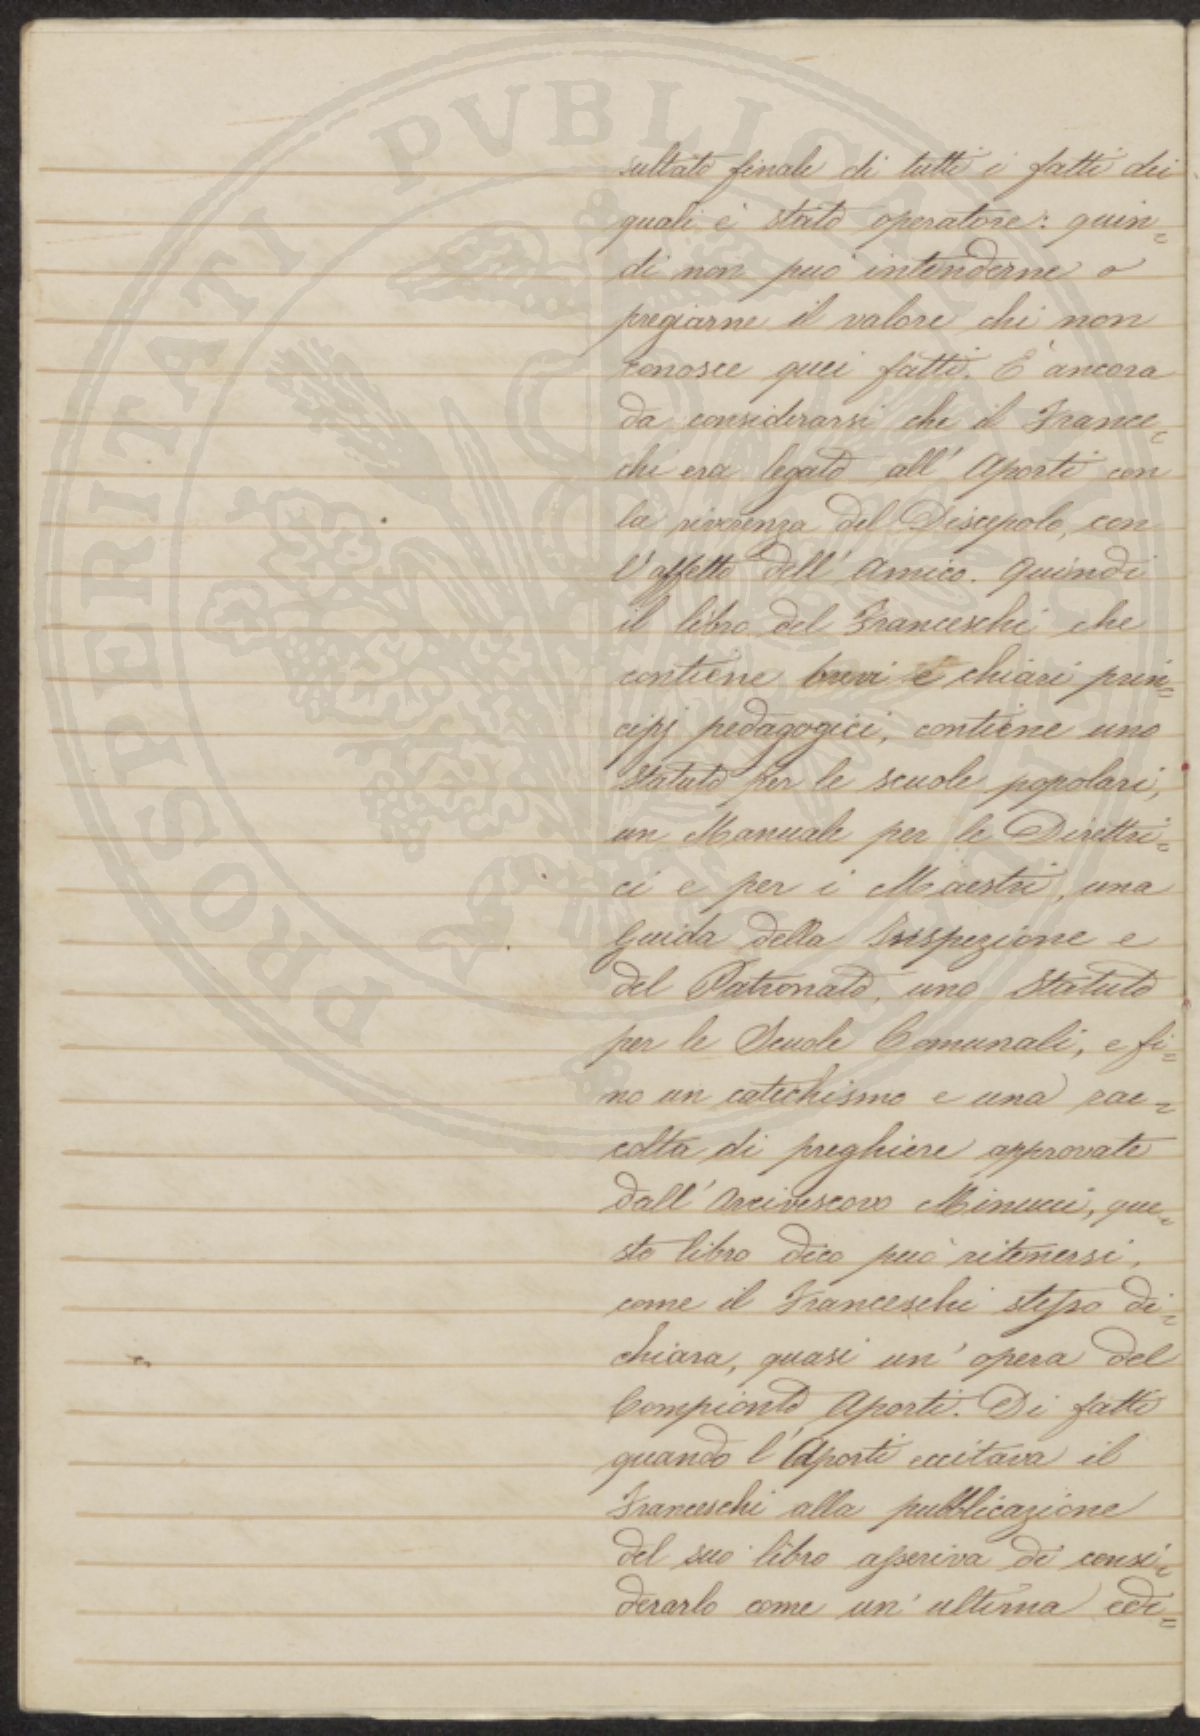 sultato finale di tutti i fatti dei
quali è stato operatore: quin=
di non può intenderne o
pregiarne il valore chi non
conosce quei fatti. È ancora
da considerarsi che il France=
chi era legato all' Aporti con
la riverenza del Discepolo, con
l'affetto dell' Amico. Quindi
il libro del Franceschi che
contiene brevi e chiari prin=
cipj pedagogici, contiene uno
Statuto per le scuole popolari,
un Manuale per le Direttri=
ci e per i Maestri, una
Guida della Inspezione e
del Patronato, uno Statuto
per le Scuole Comunali, e fi=
no un catechismo e una rac=
colta di preghiere approvate
dall' Arcivescovo Minucci, que=
sto libro dico può ritenersi,
come il Franceschi stesso di=
chiara, quasi un' opera del
Compianto Aporti. Di fatto
quando l'Aporti eccitava il
Franceschi alla pubblicazione
del suo libro asseriva di consi=
derarlo come un' ultima edi=
PROSPERITATI PVBLICAE